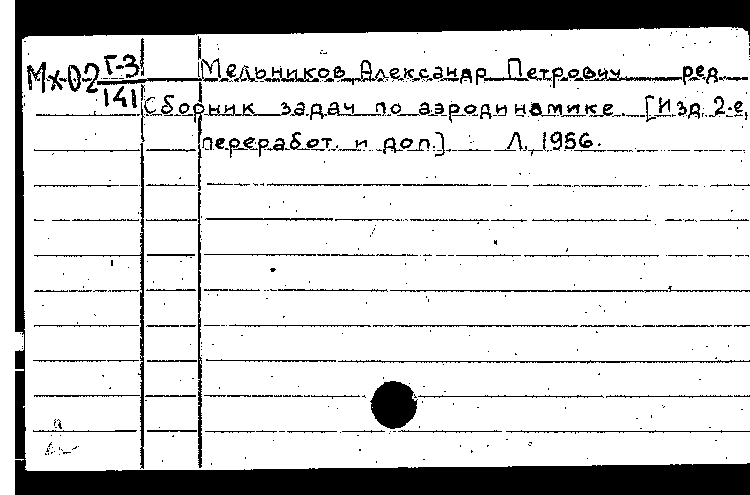 Мх-02 Г-3/141 Мельников, Александр Петрович ред.
Сборник задач по аэродинамике. [Изд. 2-е,
переработ. и доп.] Л., 1956.
а